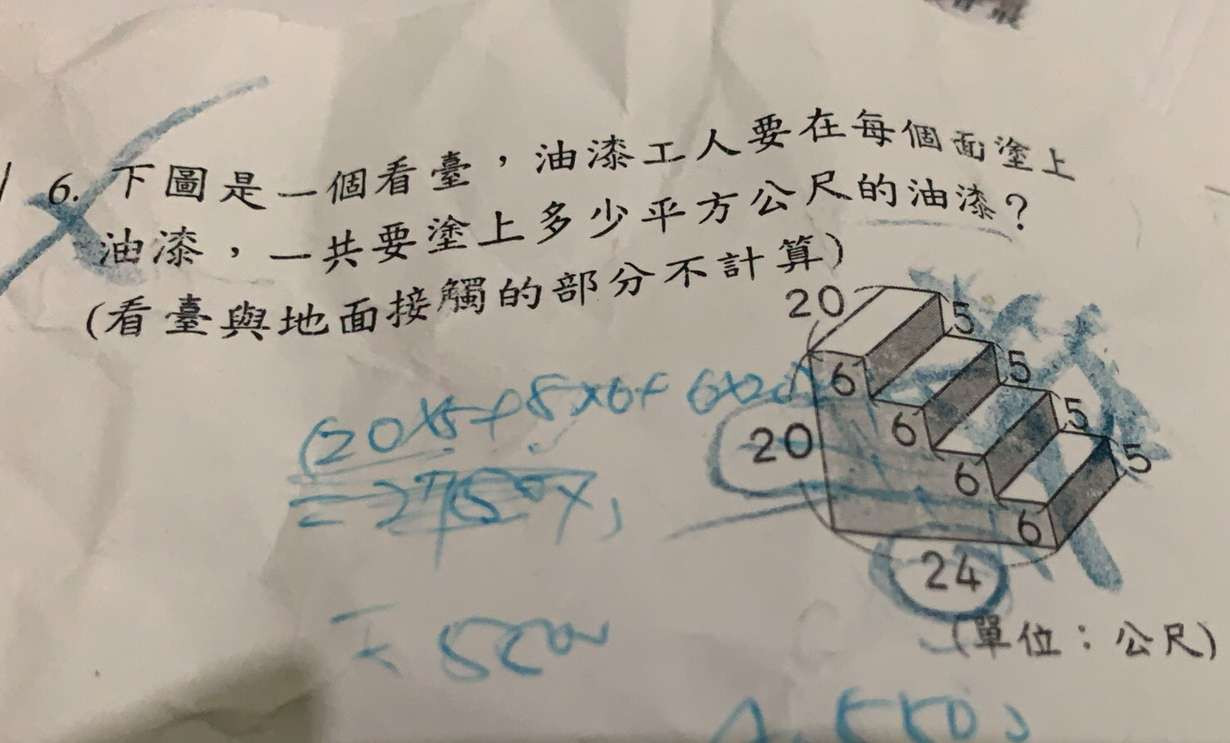 6. 下圖是一個看臺，油漆工人要在每個面塗上
油漆，一共要塗上多少平方公尺的油漆？
(看臺與地面接觸的部分不計算)
20
5
6
5
6
5
20
6
5
6
24
(單位：公尺)
(20×5+8×6+6×20